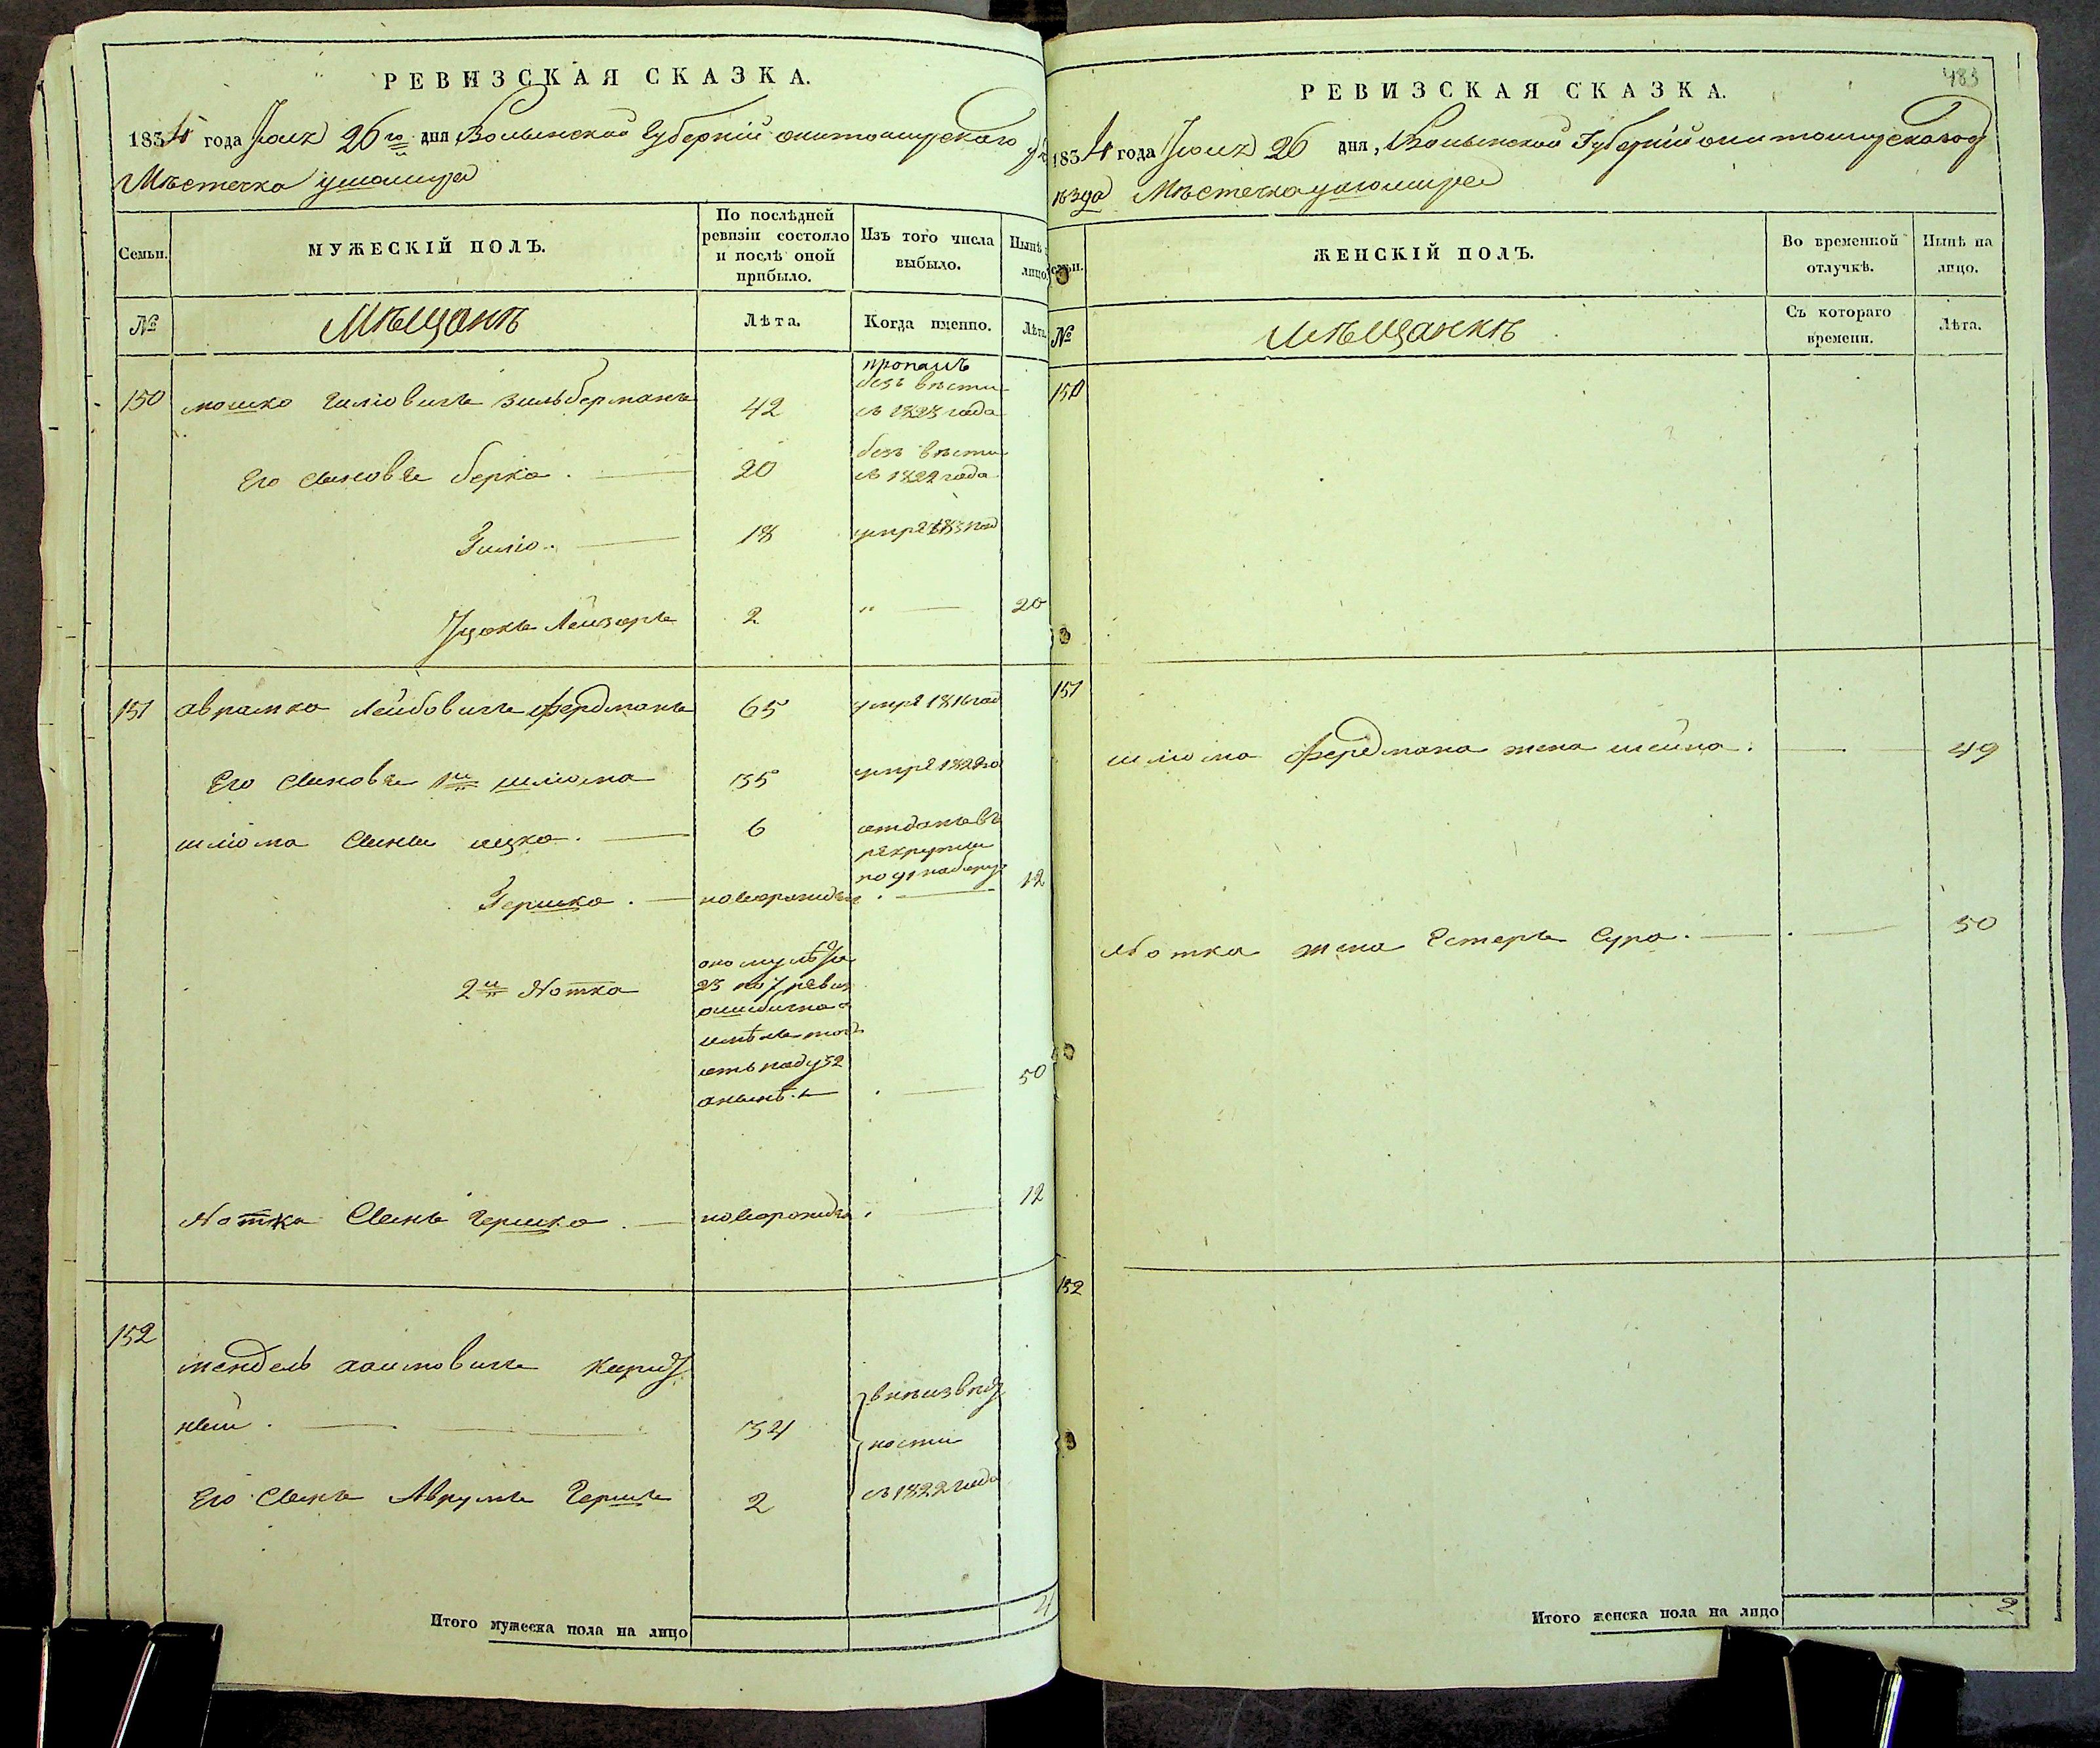 РЕВИЗСКАЯ СКАЗКА.
1834 года Юня 26го дня Волынской Губерній Житомирскаго
Мѣстечка Ушомира
Семьи.
МУЖЕСКІЙ ПОЛЪ.
По послѣдней ревизіи состояло и послѣ оной прибыло.
Изъ того числа выбыло.
Нынѣ на лицо.
№
Мѣщанъ
Лѣта.
Когда именно.
Лѣта.
150 мошко Гиліовичъ зильберманъ 42 пропалъ безъ вѣсти съ 1823 года
Его сыновьи берко 20 безъ вѣсти съ 1822 года
Гиліо. 18
Іцокъ Лейзоръ 2 " 20
151 аврамко Лейбовичъ фердманъ 65 умре 1816 год
Его сыновьи 1й шліома 35 умре 1822 го
шліома сынъ ицко. 6 отданъ въ рекруты
Гершко. новорожден 12
2й Нотка
ошибочно
50
Нотка сынъ Гершко новорожден 12
152
мендель хаимовичъ
ный. 34
в неизвѣст
ности
съ 1822 года
Его Сынъ Аврумъ Гершъ 2
Итого мужеска пола на лицо 4
РЕВИЗСКАЯ СКАЗКА.
483
1834 года Юня 26 дня, Волынской Губерній Житомирскаго у
ѣзда Мѣстечка ушомира
Семьи.
ЖЕНСКІЙ ПОЛЪ.
Во временной отлучкѣ.
Нынѣ на лицо.
№
Мѣщанкъ
Съ котораго времени.
Лѣта.
150
151
шліома фердмана жена шейна. 49
Нотка жена Естеръ Сура. 50
152
Итого женска пола на лицо 2